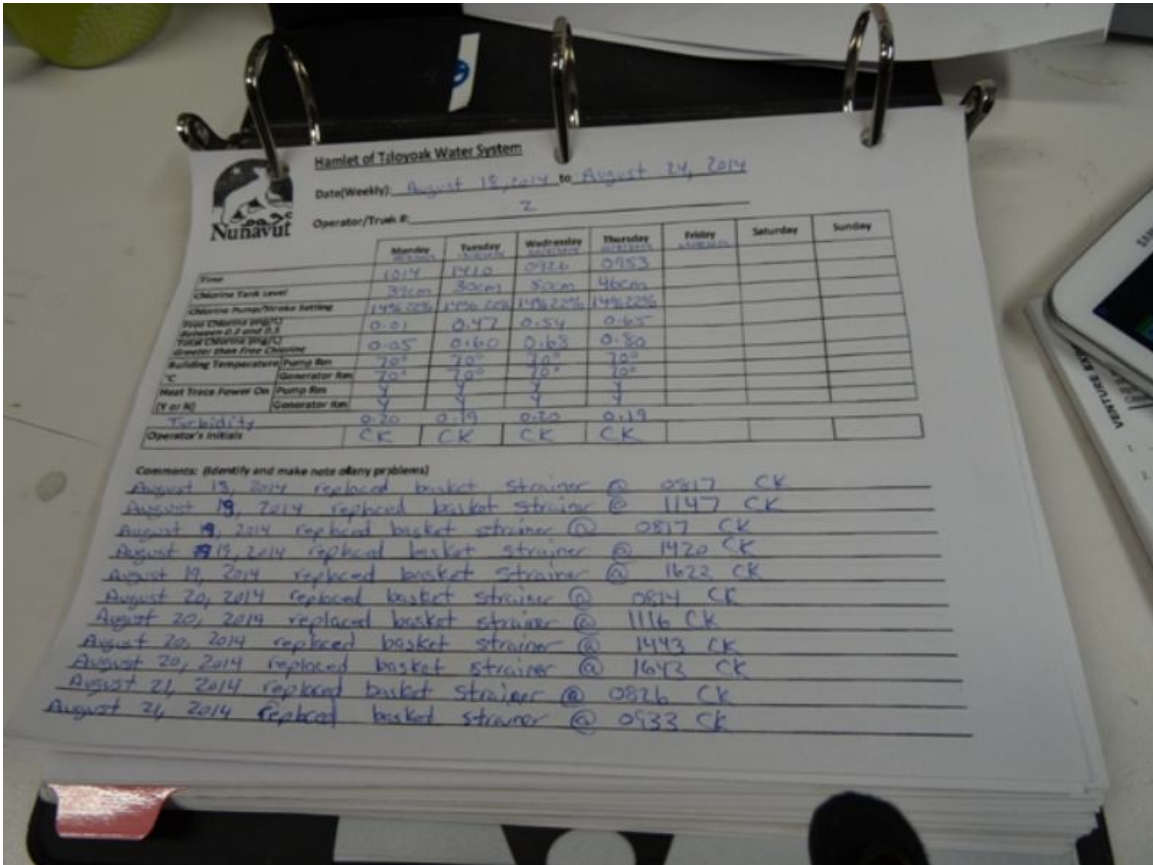 Hamlet of Taloyoak Water System
Date(Weekly): August 18, 2014 to August 24, 2014
Operator/Truck #: 2
Nunavut
Monday Tuesday Wednesday Thursday Friday Saturday Sunday
Time 1014 1410 0926 0953
Chlorine Tank Level 39cm 30cm 50cm 46cm
Chlorine Pump/Stroke Setting 14% 22% 14% 22% 14% 22% 14% 22%
Free Chlorine (mg/L) 0.01 0.47 0.54 0.65
Between 0.2 and 0.5
Total Chlorine (mg/L) 0.05 0.60 0.68 0.80
Greater than Free Chlorine
Building Temperature Pump Rm 70° 70° 70° 70°
°C Generator Rm 70° 70° 70° 70°
Heat Trace Power On Pump Rm Y Y Y Y
(Y or N) Generator Rm Y Y Y Y
Turbidity 0.20 0.19 0.20 0.19
Operator's Initials CK CK CK CK
Comments: (Identify and make note of any problems)
August 18, 2014 replaced basket strainer @ 0817 CK
August 19, 2014 replaced basket strainer @ 1147 CK
August 19, 2014 replaced basket strainer @ 0817 CK
August 19, 2014 replaced basket strainer @ 1420 CK
August 19, 2014 replaced basket strainer @ 1622 CK
August 20, 2014 replaced basket strainer @ 0814 CK
August 20, 2014 replaced basket strainer @ 1116 CK
August 20, 2014 replaced basket strainer @ 1443 CK
August 20, 2014 replaced basket strainer @ 1643 CK
August 21, 2014 replaced basket strainer @ 0826 CK
August 21, 2014 replaced basket strainer @ 0933 CK